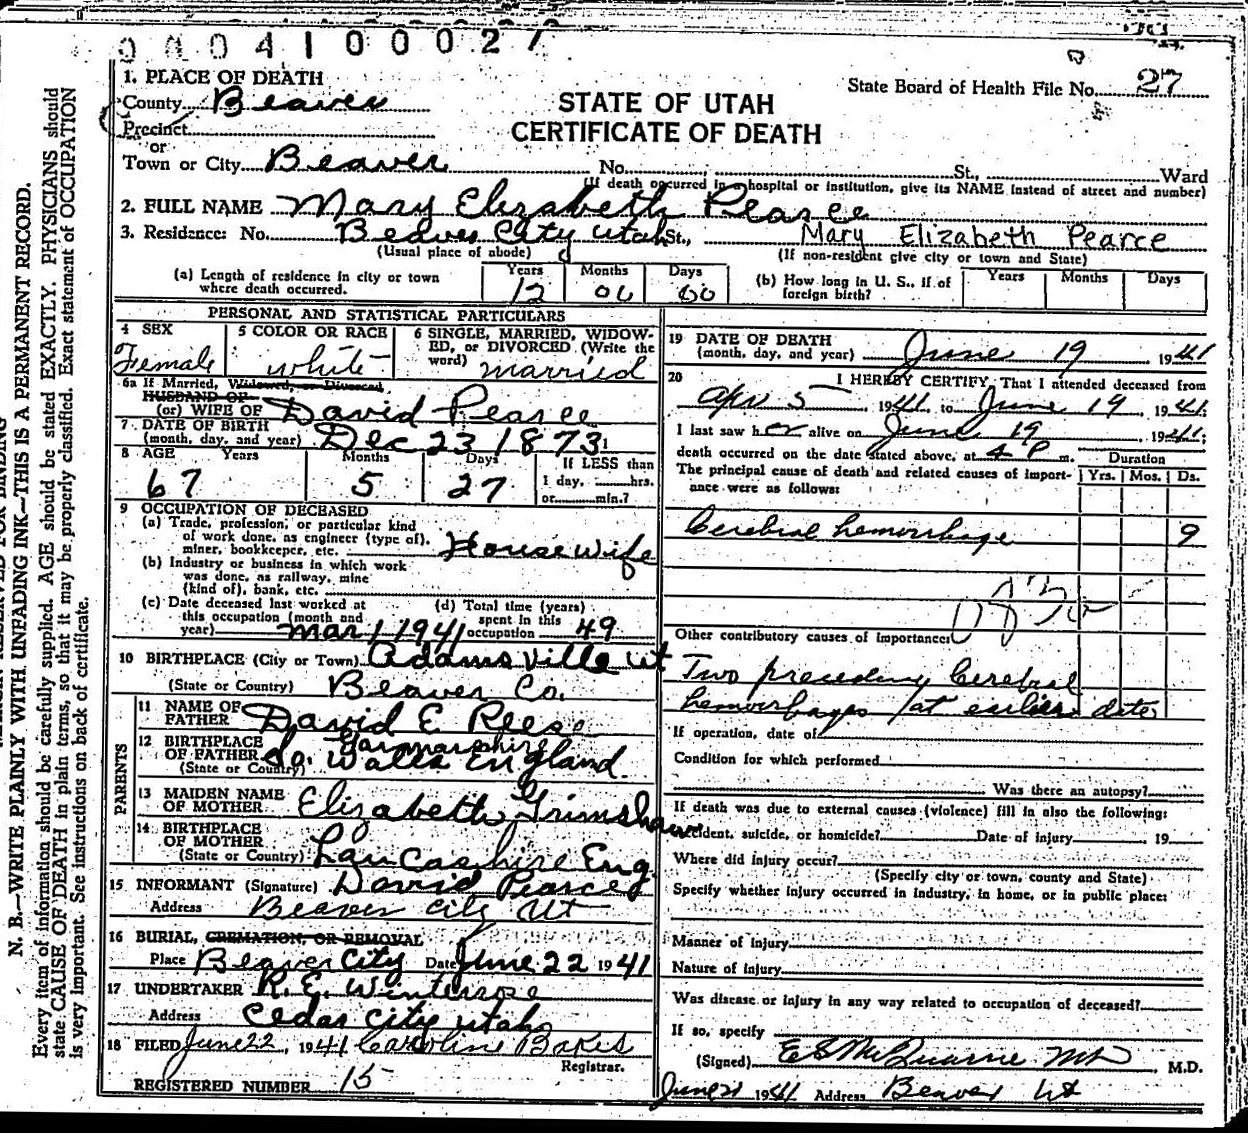 0004100027
1. PLACE OF DEATH
State Board of Health File No. 27
County Beaver
STATE OF UTAH
Precinct
CERTIFICATE OF DEATH
or
Town or City Beaver No. St., Ward
(If death occurred in hospital or institution, give its NAME instead of street and number)
2. FULL NAME Mary Elizabeth Pearce
3. Residence: No. Beaver City Utah St., Mary Elizabeth Pearce
(Usual place of abode) (If non-resident give city or town and State)
(a) Length of residence in city or town where death occurred. Years 12 Months 06 Days 00
(b) How long in U. S., if of foreign birth? Years Months Days
PERSONAL AND STATISTICAL PARTICULARS
4 SEX Female
5 COLOR OR RACE white
6 SINGLE, MARRIED, WIDOWED, or DIVORCED (Write the word) married
6a If Married, Widowed, or Divorced
HUSBAND OF
(or) WIFE OF David Pearce
7 DATE OF BIRTH
(month, day, and year) Dec 23 1873
8 AGE Years Months Days If LESS than
67 5 27 1 day, hrs.
or min.?
9 OCCUPATION OF DECEASED
(a) Trade, profession, or particular kind
of work done, as engineer (type of),
miner, bookkeeper, etc. Housewife
(b) Industry or business in which work
was done, as railway, mine
(kind of), bank, etc.
(c) Date deceased last worked at this occupation (month and year) Mar 1 1941
(d) Total time (years) spent in this occupation 49
10 BIRTHPLACE (City or Town) Adamsville Ut
(State or Country) Beaver Co.
PARENTS
11 NAME OF
FATHER David E Rees
12 BIRTHPLACE
OF FATHER So. Wales England
(State or Country)
13 MAIDEN NAME
OF MOTHER Elizabeth Grimshaw
14 BIRTHPLACE
OF MOTHER
(State or Country) Lancashire Eng.
15 INFORMANT (Signature) David Pearce
Address Beaver City Ut
16 BURIAL, CREMATION, OR REMOVAL
Place Beaver City Date June 22 1941
17 UNDERTAKER R. E. Winterrose
Address Cedar City Utah
18 FILED June 22, 1941 Caroline Bakes
Registrar.
REGISTERED NUMBER 15
19 DATE OF DEATH
(month, day, and year) June 19 1941
20 I HEREBY CERTIFY, That I attended deceased from
Apr 5 1941 to June 19, 1941.
I last saw her alive on June 19, 1941;
death occurred on the date stated above, at 4 P m. Duration
The principal cause of death and related causes of importance were as follows: Yrs. Mos. Ds.
Cerebral hemorrhage 9
Other contributory causes of importance:
Two preceding Cerebral
hemorrhages at earlier dates
If operation, date of
Condition for which performed
Was there an autopsy?
If death was due to external causes (violence) fill in also the following:
Accident, suicide, or homicide? Date of injury 19
Where did injury occur?
(Specify city or town, county and State)
Specify whether injury occurred in industry, in home, or in public place:
Manner of injury
Nature of injury
Was disease or injury in any way related to occupation of deceased?
If so, specify
(Signed) E S McQuarrie MD, M.D.
June 21 1941 Address Beaver Ut
N. B.—WRITE PLAINLY WITH UNFADING INK—THIS IS A PERMANENT RECORD.
Every item of information should be carefully supplied. AGE should be stated EXACTLY. PHYSICIANS should
state CAUSE OF DEATH in plain terms, so that it may be properly classified. Exact statement of OCCUPATION
is very important. See instructions on back of certificate.